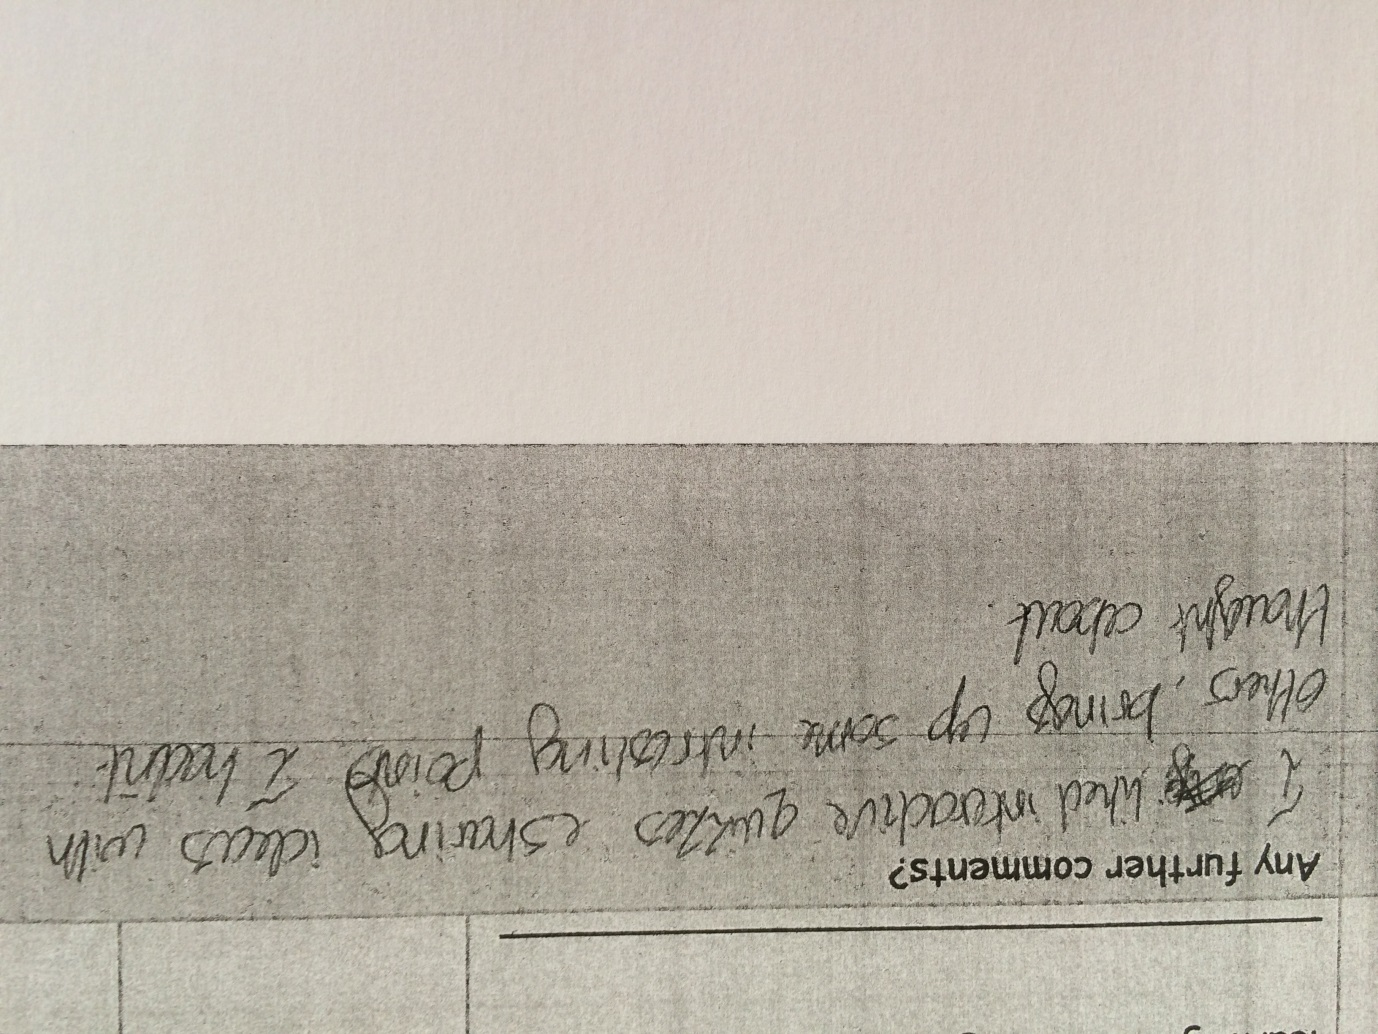 Any further comments?
I liked interactive quizzes & sharing ideas with
others, brings up some intresting points I hadnt
thought about.